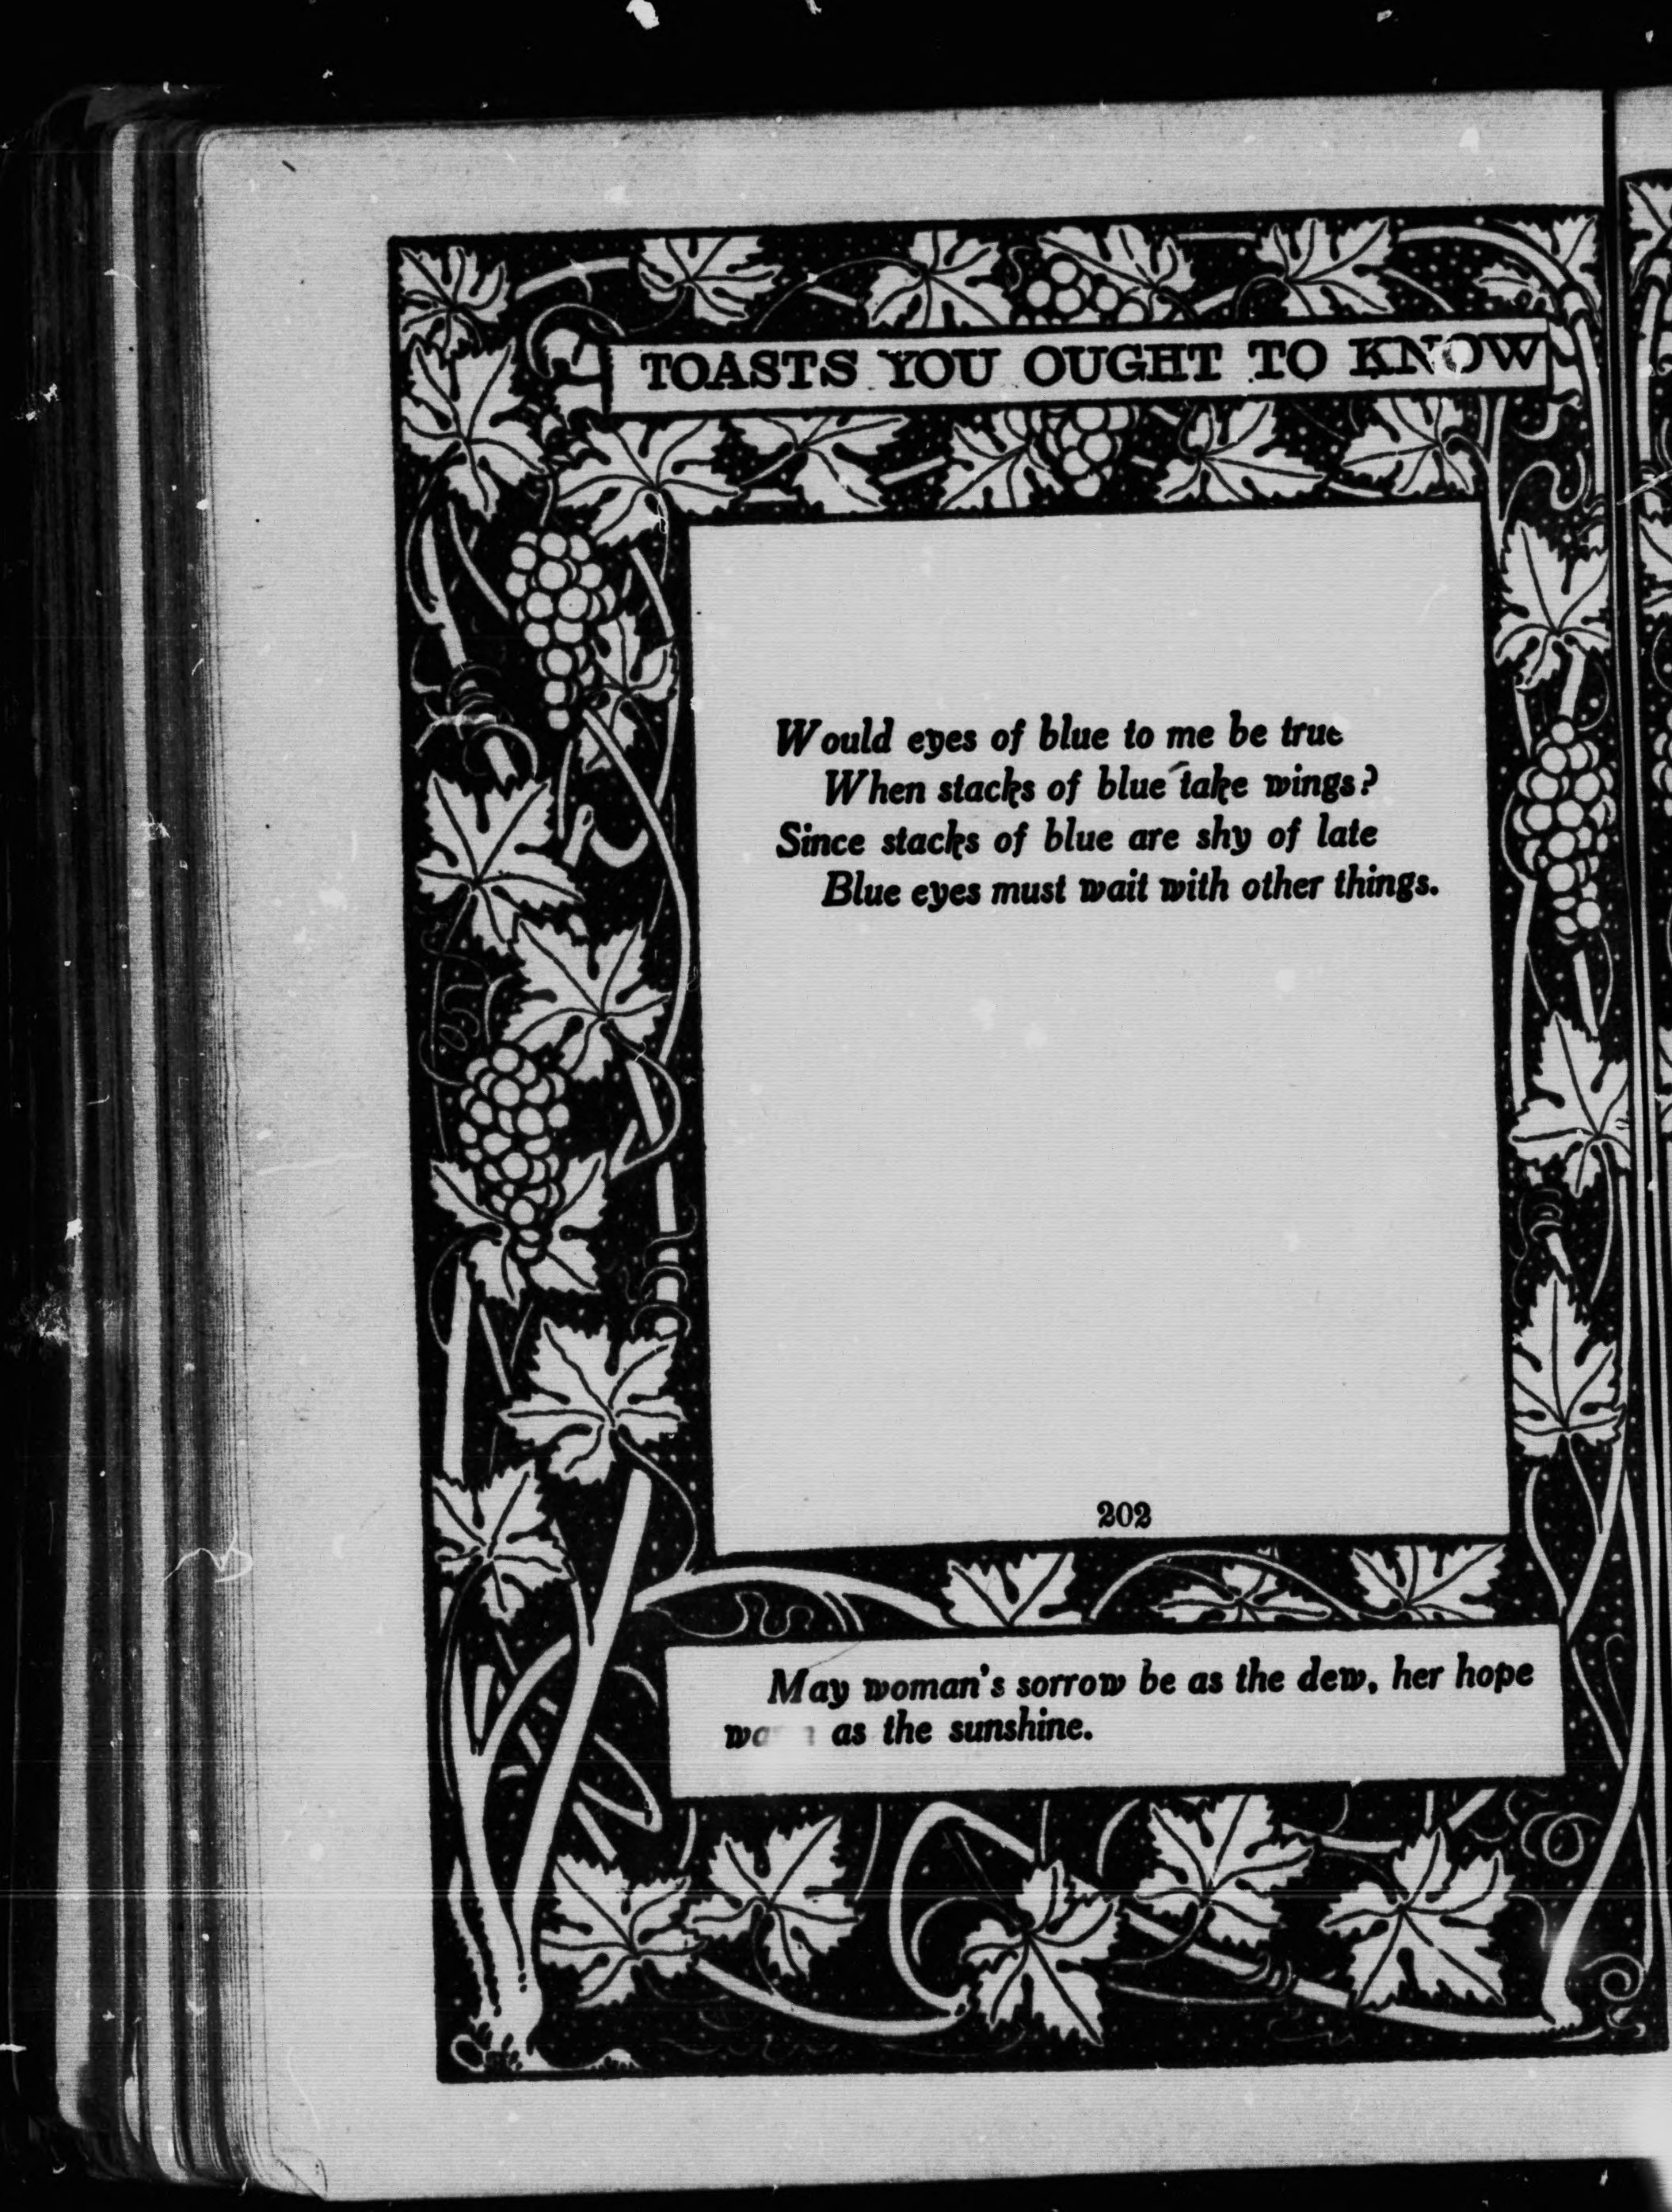 TOASTS YOU OUGHT TO KNOW
Would eyes of blue to me be true
When stacks of blue take wings?
Since stacks of blue are shy of late
Blue eyes must wait with other things.
202
May woman's sorrow be as the dew, her hope
as the sunshine.